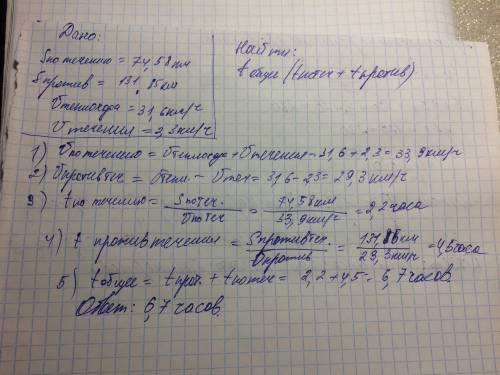 Дано:
Sпо течению = 74,58 км
Sпротив = 131,85 км
Vтеплохода = 31,6 км/ч
Vтечения = 2,3 км/ч
Найти:
t общее (tпотеч + tпротив)
1) Vпо течению = Vтеплохода + Vтечения = 31,6 + 2,3 = 33,9 км/ч
2) Vпротив теч = Vтепл - Vтеч = 31,6 - 2,3 = 29,3 км/ч
3) t по течению = Sпотеч. / Vпотеч = 74,58 км / 33,9 км/ч = 2,2 часа
4) t против течения = Sпротивтеч. / Vпротив = 131,85 км / 29,3 км/ч = 4,5 часа
5) t общее = t прот. + t потеч = 2,2 + 4,5 = 6,7 часов.
Ответ: 6,7 часов.